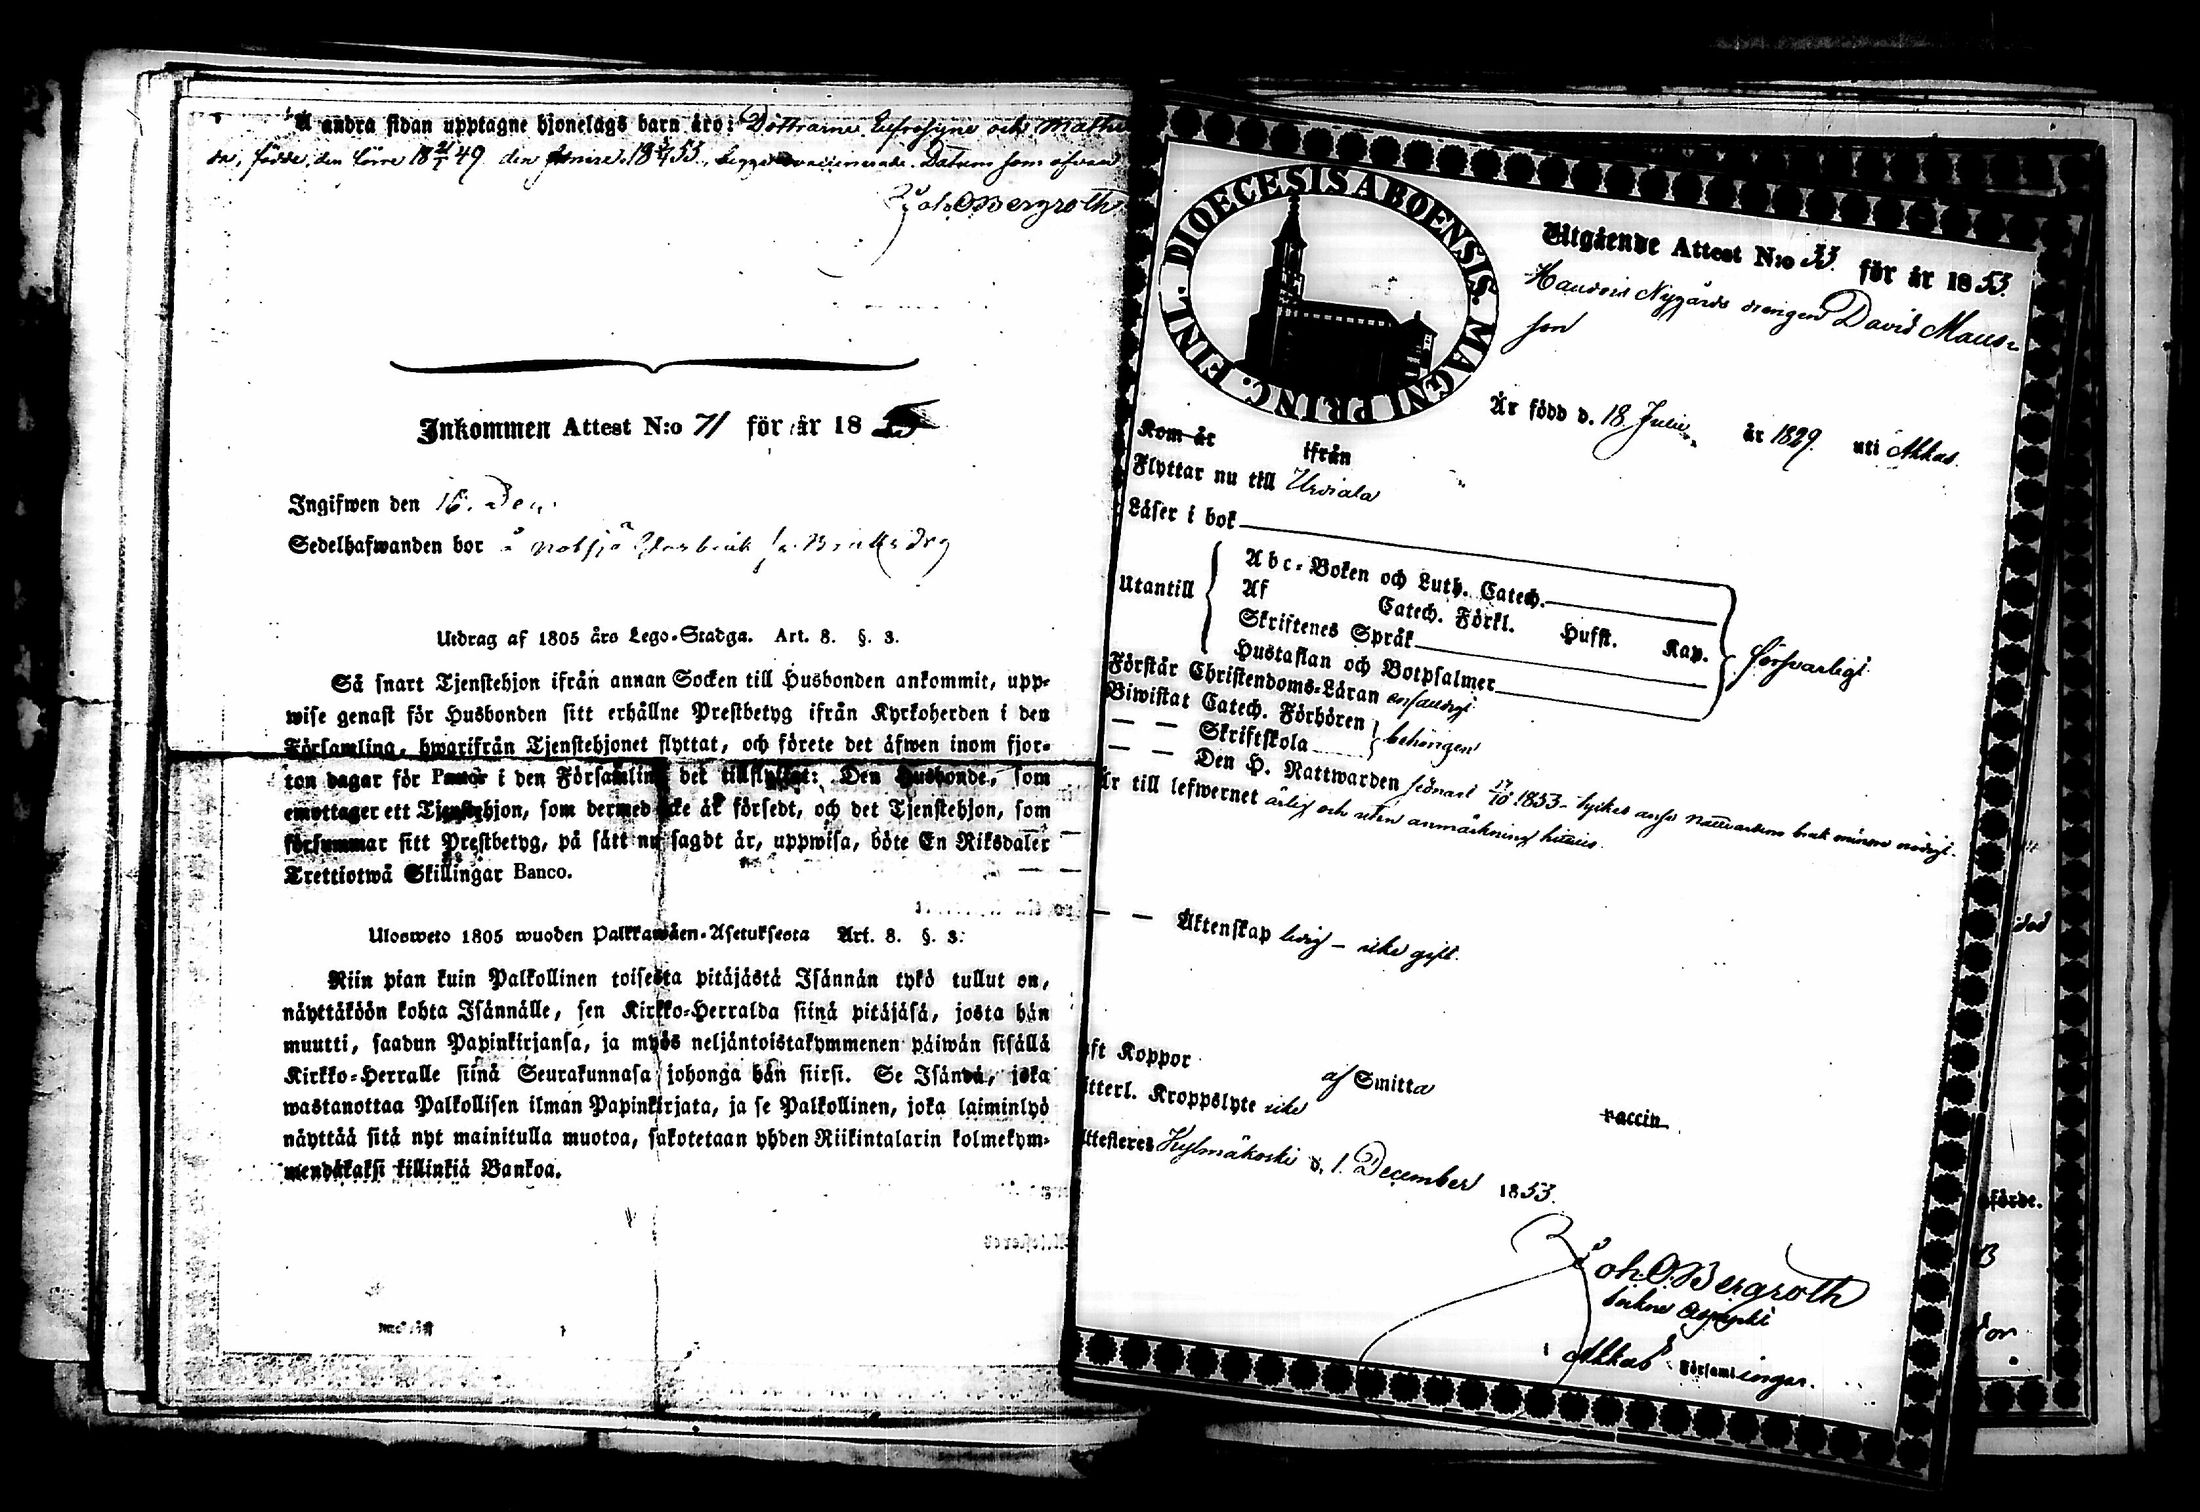 Å andra sidan upptagne hjonelags barn äro: Döttrarne Eufrosyne och Mathil
da, födde, den förre 18 49 den 18 53, begge vaccinerade. Datum som ofvan
Joh. O. Bergroth
Inkommen Attest N:o 71 för år 18
Ingifwen den 16. Dec.
Sedelhafwanden bor å Notsjö Glasbruk
Utdrag af 1805 års Lego-Stadga. Art. 8. §. 3.
Så snart Tjenstehjon ifrån annan Socken till Husbonden ankommit, upp-
wise genast för Husbonden sitt erhållne Prestbetyg ifrån Kyrkoherden i den
Församling, hwarifrån Tjenstehjonet flyttat, och förete det äfwen inom fjor-
ton dagar för Pastor i den Församling det tillflyttat: Den Husbonde, som
emottager ett Tjenstehjon, som dermed icke är försedt, och det Tjenstehjon, som
försummar sitt Prestbetyg, på sätt nu sagdt är, uppwisa, böte En Riksdaler
Trettiotwå Skillingar Banco.
Ulosweto 1805 wuoden Palkkawäen-Asetuksesta Art. 8. §. 3.
Niin pian kuin Palkollinen toisesta pitäjästä Isännän tykö tullut on,
näyttäköön kohta Isännälle, sen Kirkko-Herralda siinä pitäjäsä, josta hän
muutti, saadun Papinkirjansa, ja myös neljäntoistakymmenen päiwän sisällä
Kirkko-Herralle siinä Seurakunnasa johonga hän siirsi. Se Isändä, joka
wastanottaa Palkollisen ilman Papinkirjata, ja se Palkollinen, joka laiminlyö
näyttää sitä nyt mainitulla muotoa, sakotetaan yhden Riikintalarin kolmekym-
mendäkaksi killinkiä Bankoa.
FINL. DIOECESIS ABOENSIS. MAGNI PRINC.
Utgående Attest N:o 33 för år 1853.
Nygårds drengen David Maus-
son
Är född d. 18 Julii år 1829. uti Akkas.
Kom år ifrån
Flyttar nu till Urdiala
Läser i bok
Utantill
Abc-Boken och Luth. Catech.
Af Catech. Förkl. Hufst. Kap.
Skriftenes Språk
Hustaflan och Botpsalmer
försvarligt
Förstår Christendoms-Läran enfaldigt
Biwistat Catech. Förhören
— — Skriftskola
behörigen
— — Den H. Nattwarden sednast 17/10 1853
är till lefwernet ärlig och utan anmärkning hittils.
— — Äktenskap ledig - icke gift.
aft Koppor af Smitta vaccin.
ytterl. Kroppslyte icke
Attesteres Kylmäkoski d. 1. December 1853.
Joh. O. Bergroth
Akkas Församlingar.